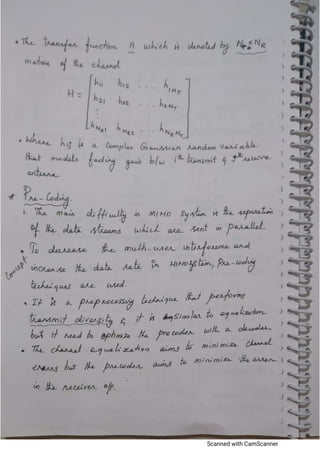 • The transfer function H which is denoted by NT x NR
matrix of the channel
H = [ h11 h12 . . . h1NT
h21 h22 . . . h2NT
⋮
hNR1 hNR2 . . . hNRNT ]
• Where hij is a Complex Gaussian random variable
that models fading gain b/w ith transmit & jth receive
antenna.
* Pre-Coding.
1. The main difficulty in MIMO system is the separation
of the data streams which are sent in parallel.
• To decrease the multi-user interference and
Concept increase the data rate in MIMO system, Pre-coding
techniques are used.
• It is a preprocessing technique that performs
transmit diversity & it is similar to equalization
but it need to optimize the precoder with a decoder.
• The channel equalization aims to minimize channel
errors but the precoder aims to minimize the error
in the receiver o/p.
Scanned with CamScanner